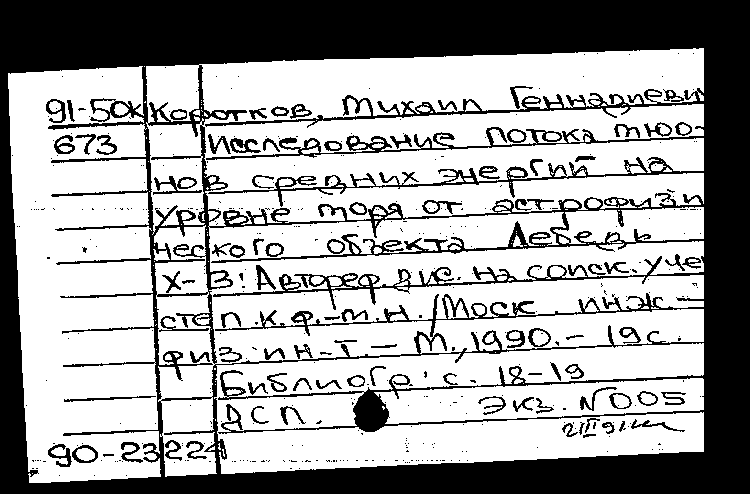 91-50к Коротков, Михаил Геннадиеви
673 Исследование потока мюо-
нов средних энергий на
уровне моря от астрофизи
ческого объекта Лебедь
X-3: Автореф. дис. на соиск. уче
степ. к.ф.-м.н. /Моск. инж.-
физ. ин-т. - М., 1990. - 19с.
Библиогр.: с. 18-19
ДСП. Экз. N005
90-23224